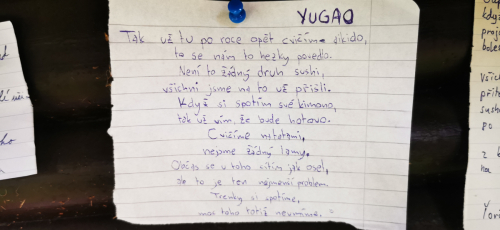 YUGAO
Tak už tu po roce opět cvičíme aikido,
to se nám to hezky povedlo.
Není to žádný druh sushi,
všichni jsme na to už přišli.
Když si spotím své kimono,
tak už vím, že bude hotovo.
Cvičíme na tatami,
nejsme žádný lamy.
Občas se u toho cítím jak osel,
ale to je ten nejmenší problem.
Trenky si spotíme,
moc toho totiž neumíme.